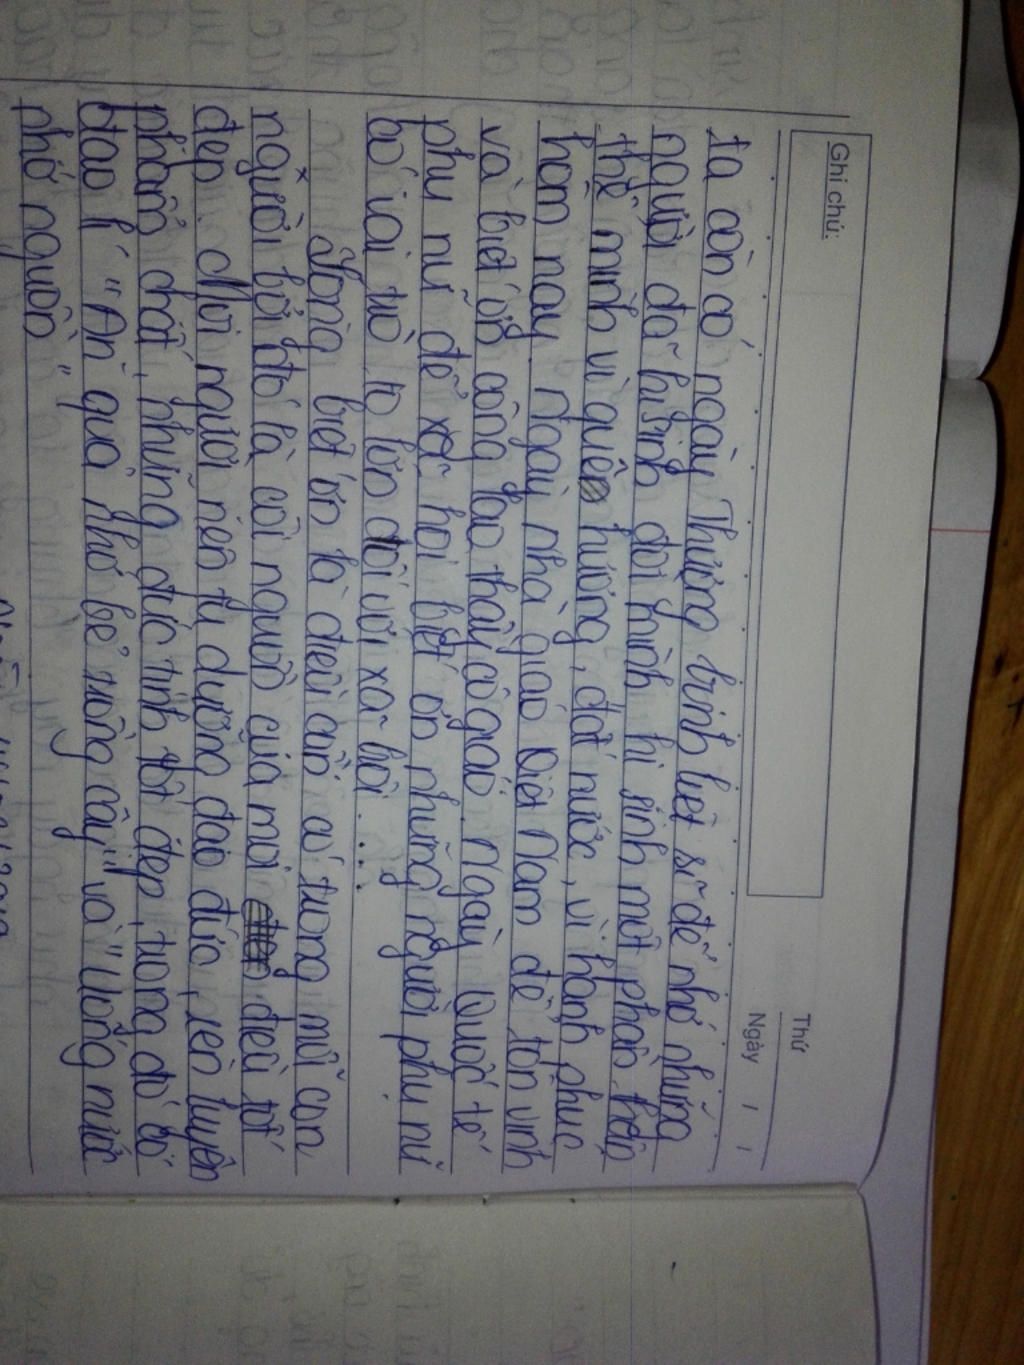 Ghi chú:
Thứ
Ngày / /
ta còn có ngày Thương binh liệt sĩ để nhớ những
người đã hi sinh đời mình hi sinh một phần thân
thể mình vì quê hương, đất nước, vì hạnh phúc
hôm nay. Ngày nhà giáo Việt Nam để tôn vinh
và biết ơn công lao thầy cô giáo. Ngày Quốc tế
phụ nữ để xã hội biết ơn những người phụ nữ
có vai trò to lớn đối với xã hội ...
Lòng biết ơn là điều cần có trong mỗi con
người bởi đó là cội nguồn của mọi điều tốt
đẹp. Mỗi người nên tu dưỡng đạo đức, rèn luyện
phẩm chất, những đức tính tốt đẹp, trong đó có
đạo lí "Ăn quả nhớ kẻ trồng cây" và "Uống nước
nhớ nguồn"